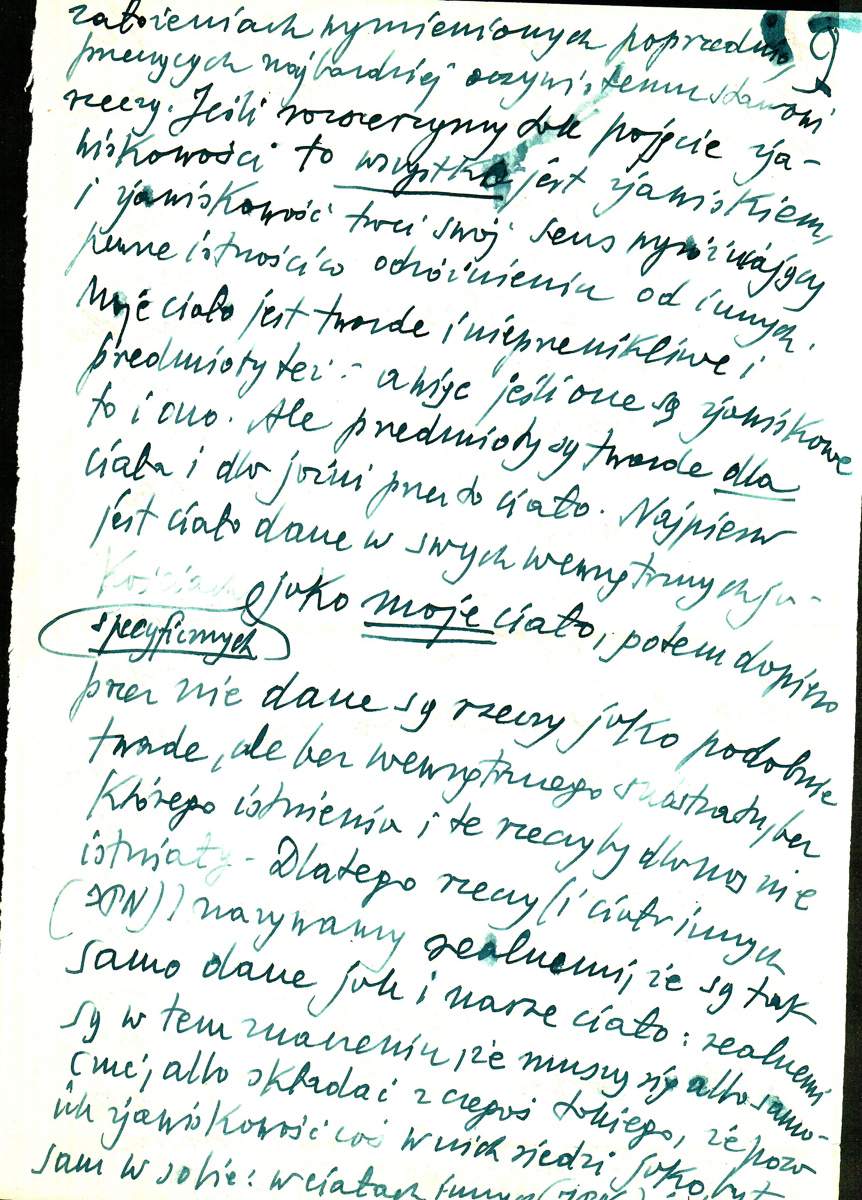 założeniach wymienionych poprzednio,
przeczących najbardziej oczywistemu stanowi
rzeczy. Jeśli rozszerzymy tak pojęcie zja-
wiskowości to wszystko jest zjawiskiem,
i zjawiskowość traci swój sens wyróżniający
pewne istności w odróżnieniu od innych.
Moje ciało jest twarde i nieprzenikliwe i
przedmioty też – a więc jeśli one są zjawiskowe
to i ono. Ale przedmioty są twarde dla
ciała i dla jaźni przez to ciało. Najpierw
jest ciało dane w swych wewnętrznych ja-
kościach jako moje ciało, potem dopiero
specyficznych
przez nie dane są rzeczy jako podobnie
twarde, ale bez wewnętrznego substratu, bez
którego istnienia i te rzeczy by dla nas nie
istniały – Dlatego rzeczy (i ciała innych
(IPN)) nazywamy realnemi, że są tak
samo dane jak i nasze ciało: realnemi
są w tem znaczeniu, że muszą się albo samo-
czuć, albo składać z czegoś takiego, że poza
ich zjawiskowość coś w nich siedzi jako byt
sam w sobie: w ciałach innych (IPN)